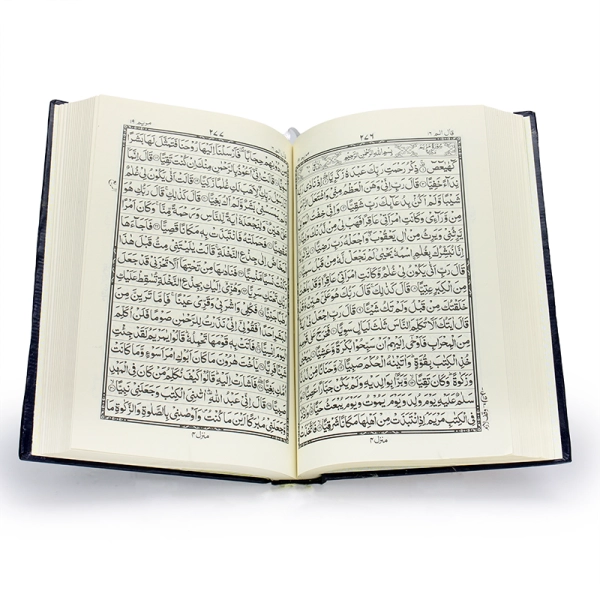 قال الم ١٦
٢٧٦
بِسْمِ اللّٰهِ الرَّحْمٰنِ الرَّحِيْمِ
كٓهٰيٰعٓصٓ ۝ ذِكْرُ رَحْمَتِ رَبِّكَ عَبْدَهٗ زَكَرِيَّا ۝ اِذْ نَادٰى رَبَّهٗ
نِدَآءً خَفِيًّا ۝ قَالَ رَبِّ اِنِّيْ وَهَنَ الْعَظْمُ مِنِّيْ وَاشْتَعَلَ الرَّاْسُ
شَيْبًا وَّلَمْ اَكُنْۢ بِدُعَآئِكَ رَبِّ شَقِيًّا ۝ وَاِنِّيْ خِفْتُ الْمَوَالِيَ
مِنْ وَّرَآءِيْ وَكَانَتِ امْرَاَتِيْ عَاقِرًا فَهَبْ لِيْ مِنْ لَّدُنْكَ وَلِيًّا ۝
يَّرِثُنِيْ وَيَرِثُ مِنْ اٰلِ يَعْقُوْبَ وَاجْعَلْهُ رَبِّ رَضِيًّا ۝ يٰزَكَرِيَّآ
اِنَّا نُبَشِّرُكَ بِغُلٰمِ اسْمُهٗ يَحْيٰى لَمْ نَجْعَلْ لَّهٗ مِنْ قَبْلُ سَمِيًّا ۝
قَالَ رَبِّ اَنّٰى يَكُوْنُ لِيْ غُلٰمٌ وَّكَانَتِ امْرَاَتِيْ عَاقِرًا وَّقَدْ بَلَغْتُ
مِنَ الْكِبَرِ عِتِيًّا ۝ قَالَ كَذٰلِكَ قَالَ رَبُّكَ هُوَ عَلَيَّ هَيِّنٌ وَّقَدْ
خَلَقْتُكَ مِنْ قَبْلُ وَلَمْ تَكُ شَيْئًا ۝ قَالَ رَبِّ اجْعَلْ لِّيْ اٰيَةً
قَالَ اٰيَتُكَ اَلَّا تُكَلِّمَ النَّاسَ ثَلٰثَ لَيَالٍ سَوِيًّا ۝ فَخَرَجَ عَلٰى قَوْمِهٖ
مِنَ الْمِحْرَابِ فَاَوْحٰٓى اِلَيْهِمْ اَنْ سَبِّحُوْا بُكْرَةً وَّعَشِيًّا ۝ يٰيَحْيٰى
خُذِ الْكِتٰبَ بِقُوَّةٍ وَاٰتَيْنٰهُ الْحُكْمَ صَبِيًّا ۝ وَّحَنَانًا مِّنْ لَّدُنَّا
وَزَكٰوةً وَكَانَ تَقِيًّا ۝ وَّبَرًّۢا بِوَالِدَيْهِ وَلَمْ يَكُنْ جَبَّارًا عَصِيًّا ۝ وَ
سَلٰمٌ عَلَيْهِ يَوْمَ وُلِدَ وَيَوْمَ يَمُوْتُ وَيَوْمَ يُبْعَثُ حَيًّا ۝ وَاذْكُرْ
فِي الْكِتٰبِ مَرْيَمَ اِذِ انْتَبَذَتْ مِنْ اَهْلِهَا مَكَانًا شَرْقِيًّا ۝
منزل ٤
مريم ١٩
٢٧٧
حِجَابًا فَاَرْسَلْنَآ اِلَيْهَا رُوْحَنَا فَتَمَثَّلَ لَهَا بَشَرًا
قَالَتْ اِنِّيْٓ اَعُوْذُ بِالرَّحْمٰنِ مِنْكَ اِنْ كُنْتَ تَقِيًّا ۝ قَالَ اِنَّمَآ
اَنَا رَسُوْلُ رَبِّكِ لِاَهَبَ لَكِ غُلٰمًا زَكِيًّا ۝ قَالَتْ اَنّٰى يَكُوْنُ لِيْ غُلٰمٌ
وَّلَمْ يَمْسَسْنِيْ بَشَرٌ وَّلَمْ اَكُ بَغِيًّا ۝ قَالَ كَذٰلِكِ قَالَ رَبُّكِ هُوَ
عَلَيَّ هَيِّنٌ وَلِنَجْعَلَهٗٓ اٰيَةً لِّلنَّاسِ وَرَحْمَةً مِّنَّا وَكَانَ اَمْرًا
مَّقْضِيًّا ۝ فَحَمَلَتْهُ فَانْتَبَذَتْ بِهٖ مَكَانًا قَصِيًّا ۝ فَاَجَآءَهَا
الْمَخَاضُ اِلٰى جِذْعِ النَّخْلَةِ قَالَتْ يٰلَيْتَنِيْ مِتُّ قَبْلَ هٰذَا
وَكُنْتُ نَسْيًا مَّنْسِيًّا ۝ فَنَادٰىهَا مِنْ تَحْتِهَآ اَلَّا تَحْزَنِيْ قَدْ جَعَلَ
رَبُّكِ تَحْتَكِ سَرِيًّا ۝ وَهُزِّيْٓ اِلَيْكِ بِجِذْعِ النَّخْلَةِ تُسٰقِطْ عَلَيْكِ
رُطَبًا جَنِيًّا ۝ فَكُلِيْ وَاشْرَبِيْ وَقَرِّيْ عَيْنًا فَاِمَّا تَرَيِنَّ مِنَ
الْبَشَرِ اَحَدًا فَقُوْلِيْٓ اِنِّيْ نَذَرْتُ لِلرَّحْمٰنِ صَوْمًا فَلَنْ اُكَلِّمَ
الْيَوْمَ اِنْسِيًّا ۝ فَاَتَتْ بِهٖ قَوْمَهَا تَحْمِلُهٗ قَالُوْا يٰمَرْيَمُ لَقَدْ جِئْتِ
شَيْئًا فَرِيًّا ۝ يٰٓاُخْتَ هٰرُوْنَ مَا كَانَ اَبُوْكِ امْرَاَ سَوْءٍ وَّمَا كَانَتْ
اُمُّكِ بَغِيًّا ۝ فَاَشَارَتْ اِلَيْهِ قَالُوْا كَيْفَ نُكَلِّمُ مَنْ كَانَ فِي الْمَهْدِ
صَبِيًّا ۝ قَالَ اِنِّيْ عَبْدُ اللّٰهِ اٰتٰىنِيَ الْكِتٰبَ وَجَعَلَنِيْ نَبِيًّا ۝ وَّ
جَعَلَنِيْ مُبٰرَكًا اَيْنَ مَا كُنْتُ وَاَوْصٰنِيْ بِالصَّلٰوةِ وَالزَّكٰوةِ مَا
منزل ٤